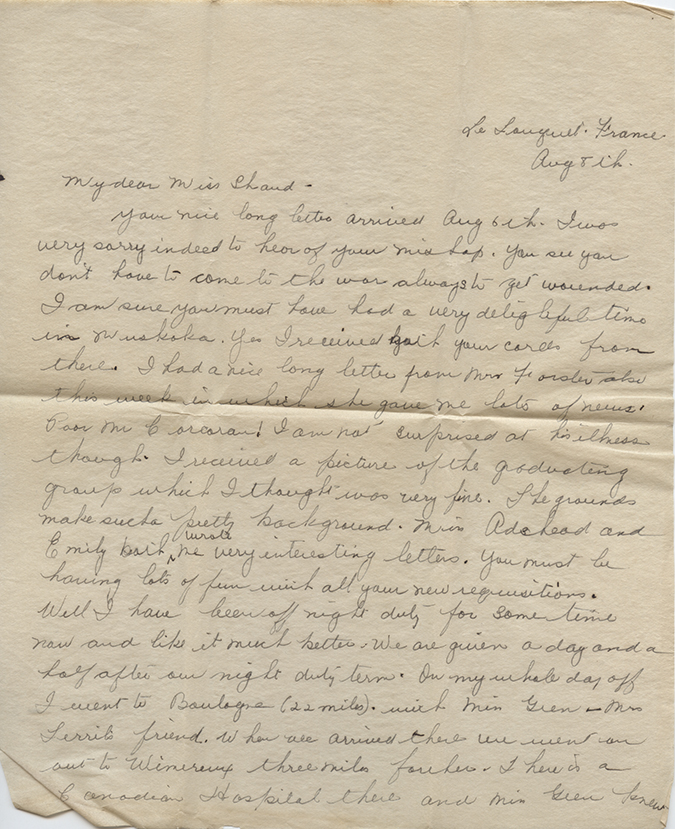 Le Touquet. France
Aug 8th.
My dear Miss Shand -
Your nice long letter arrived Aug 6th. I was
very sorry indeed to hear of your mishap. You see you
don't have to come to the war always to get wounded.
I am sure you must have had a very delightful time
in Muskoka. Yes I received both your cards from
there. I had a nice long letter from Mrs Forster also
this week in which she gave me lots of news.
Poor Mr Corcoran! I am not surprised at his illness
though. I received a picture of the graduating
group which I thought was very fine. The grounds
make such a pretty background. Miss Adshead and
Emily both wrote me very interesting letters. You must be
having lots of fun with all your new requisitions.
Well I have been off night duty for some time
now and like it much better. We are given a day and a
half after our night duty term. On my whole day off
I went to Boulogne (22 miles). with Miss Green - Mrs
friend. When we arrived there we went on
out to Wimereux three miles farther. There is a
Canadian Hospital there and Miss Green knew